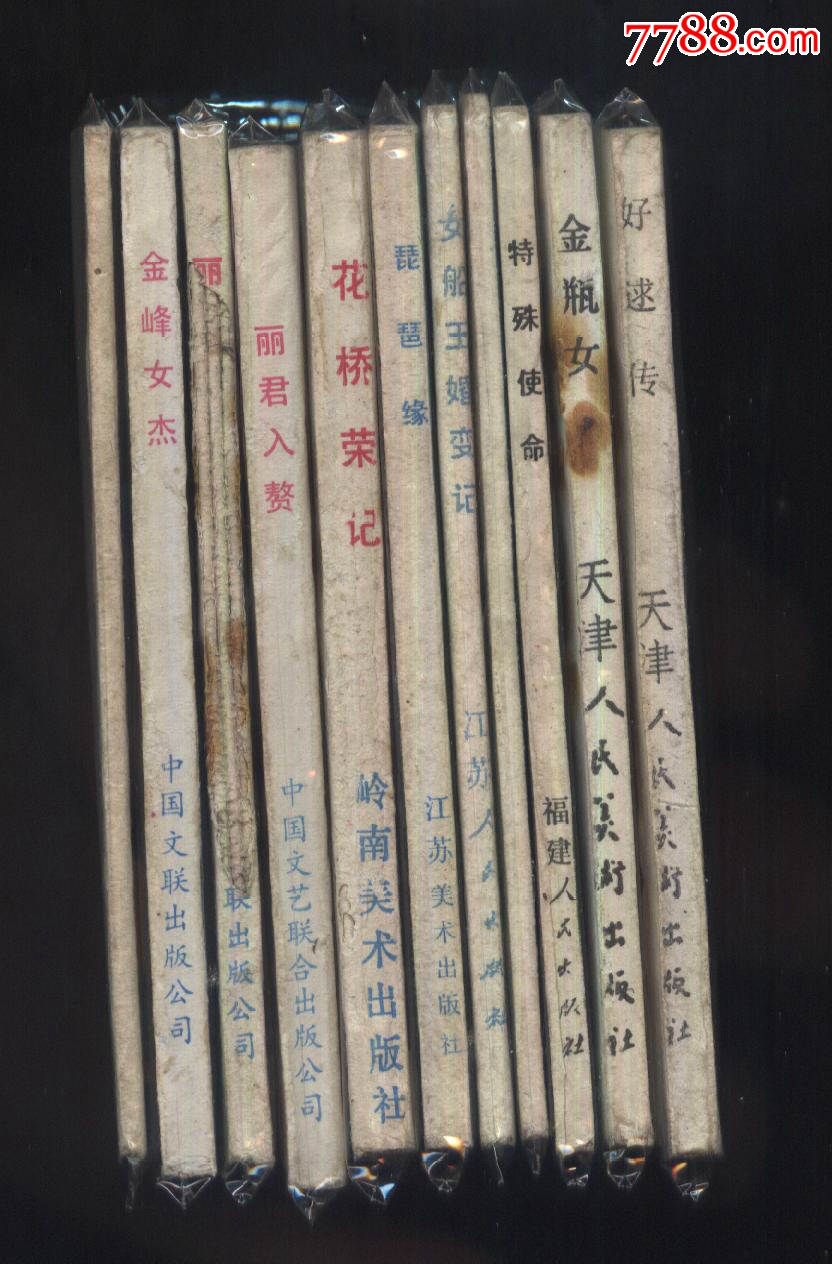 7788.com
金峰女杰
中国文联出版公司
丽
联出版公司
丽君入赘
中国文艺联合出版公司
花桥荣记
岭南美术出版社
琵琶缘
江苏美术出版社
女船王婚变记
江苏人民出版社
特殊使命
福建人民出版社
金瓶女
天津人民美术出版社
好逑传
天津人民美术出版社